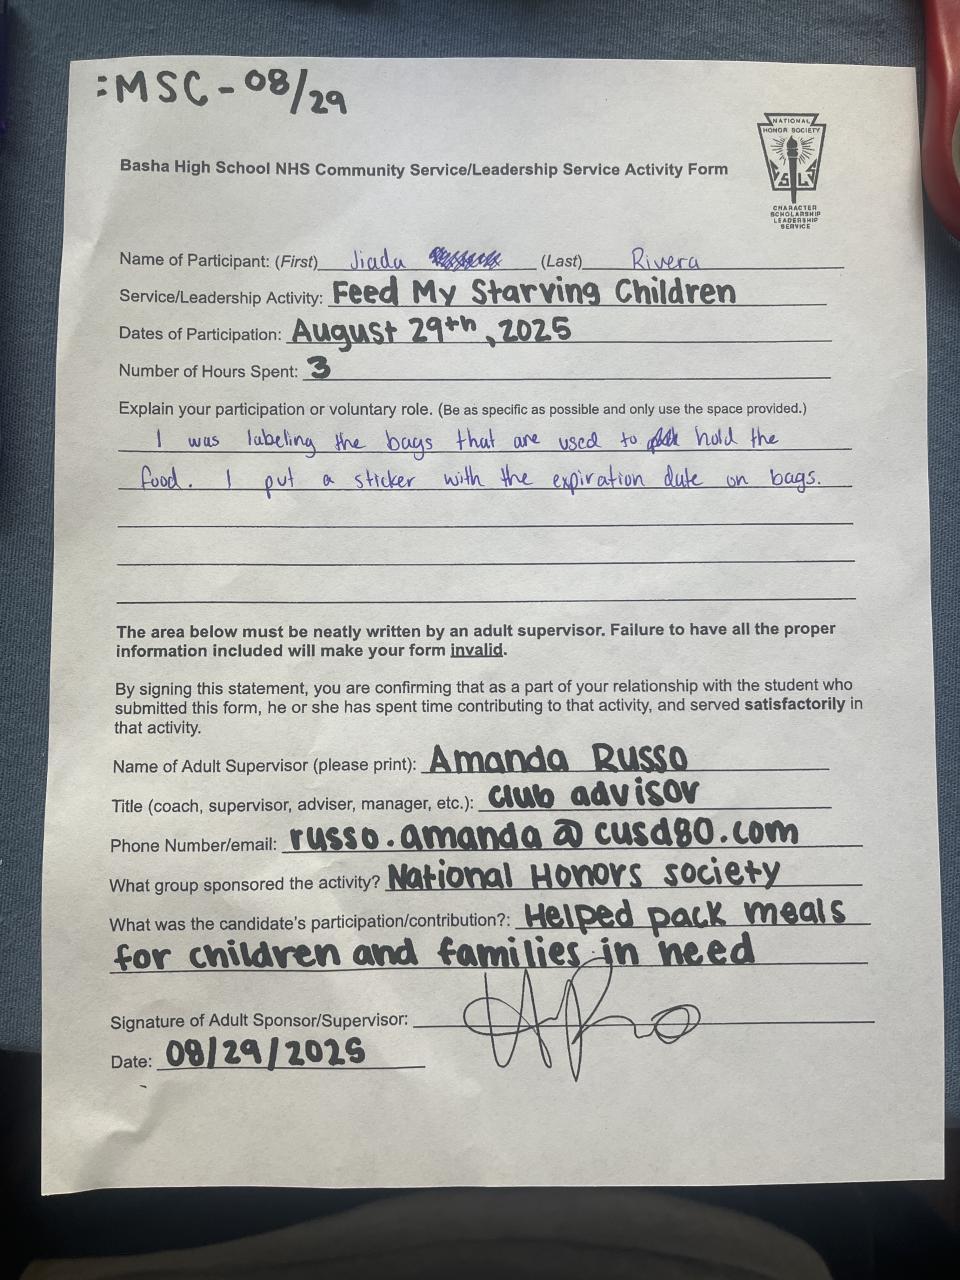 :MSC-08/29
NATIONAL
HONOR SOCIETY
S L
CHARACTER
SCHOLARSHIP
LEADERSHIP
SERVICE
Basha High School NHS Community Service/Leadership Service Activity Form
Name of Participant: (First) Jiada (Last) Rivera
Service/Leadership Activity: Feed My Starving Children
Dates of Participation: August 29th, 2025
Number of Hours Spent: 3
Explain your participation or voluntary role. (Be as specific as possible and only use the space provided.)
I was labeling the bags that are used to hold the
food. I put a sticker with the expiration date on bags.
The area below must be neatly written by an adult supervisor. Failure to have all the proper
information included will make your form invalid.
By signing this statement, you are confirming that as a part of your relationship with the student who
submitted this form, he or she has spent time contributing to that activity, and served satisfactorily in
that activity.
Name of Adult Supervisor (please print): Amanda Russo
Title (coach, supervisor, adviser, manager, etc.): club advisor
Phone Number/email: russo.amanda@cusd80.com
What group sponsored the activity? National Honors society
What was the candidate's participation/contribution?: Helped pack meals
for children and families in need
Signature of Adult Sponsor/Supervisor:
Date: 08/29/2025